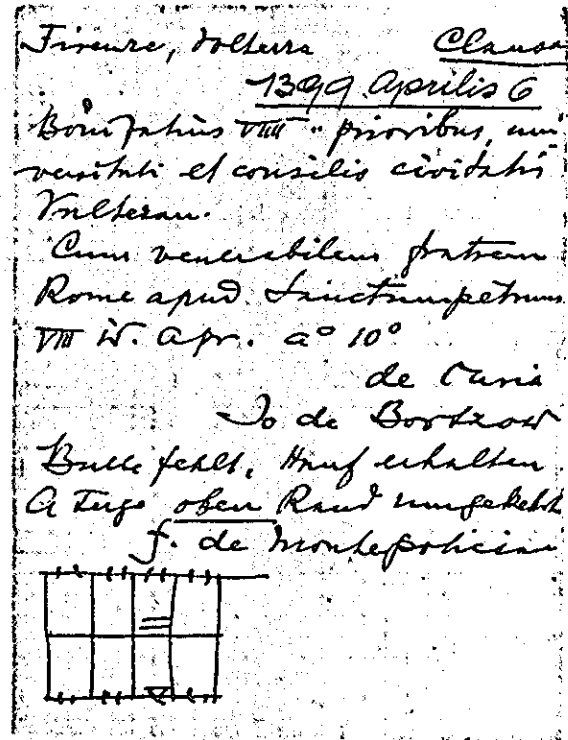 Firenze, Volterra Clausa
1399 Aprilis 6
Bonifatius VIIII " prioribus, uni
versitati et consilio civitatis
Vulteran.
Cum venerabilem fratrem
Rome apud Sanctumpetrum
VIII id. Apr. a° 10°
de Curia
Jo de Bortzow
Bulle fehlt, Hanf erhalten
A Tergo oben Rand umgekehrt
f. de Montepolician